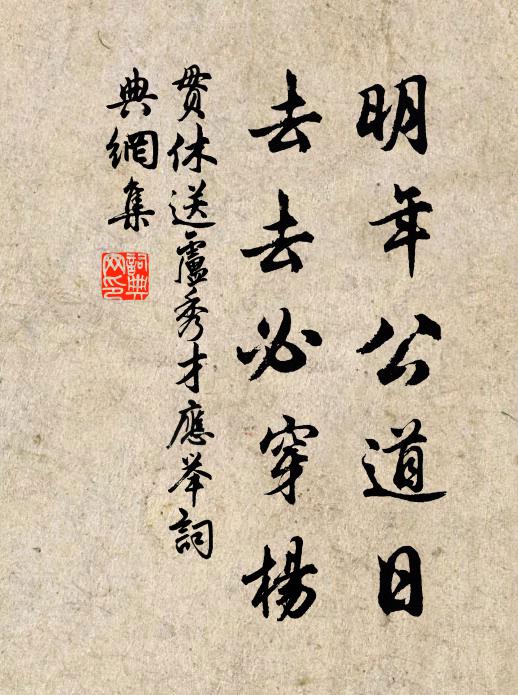 明年公道日
去去必穿楊
貫休送盧秀才應举詞
典網集
詞典
网印